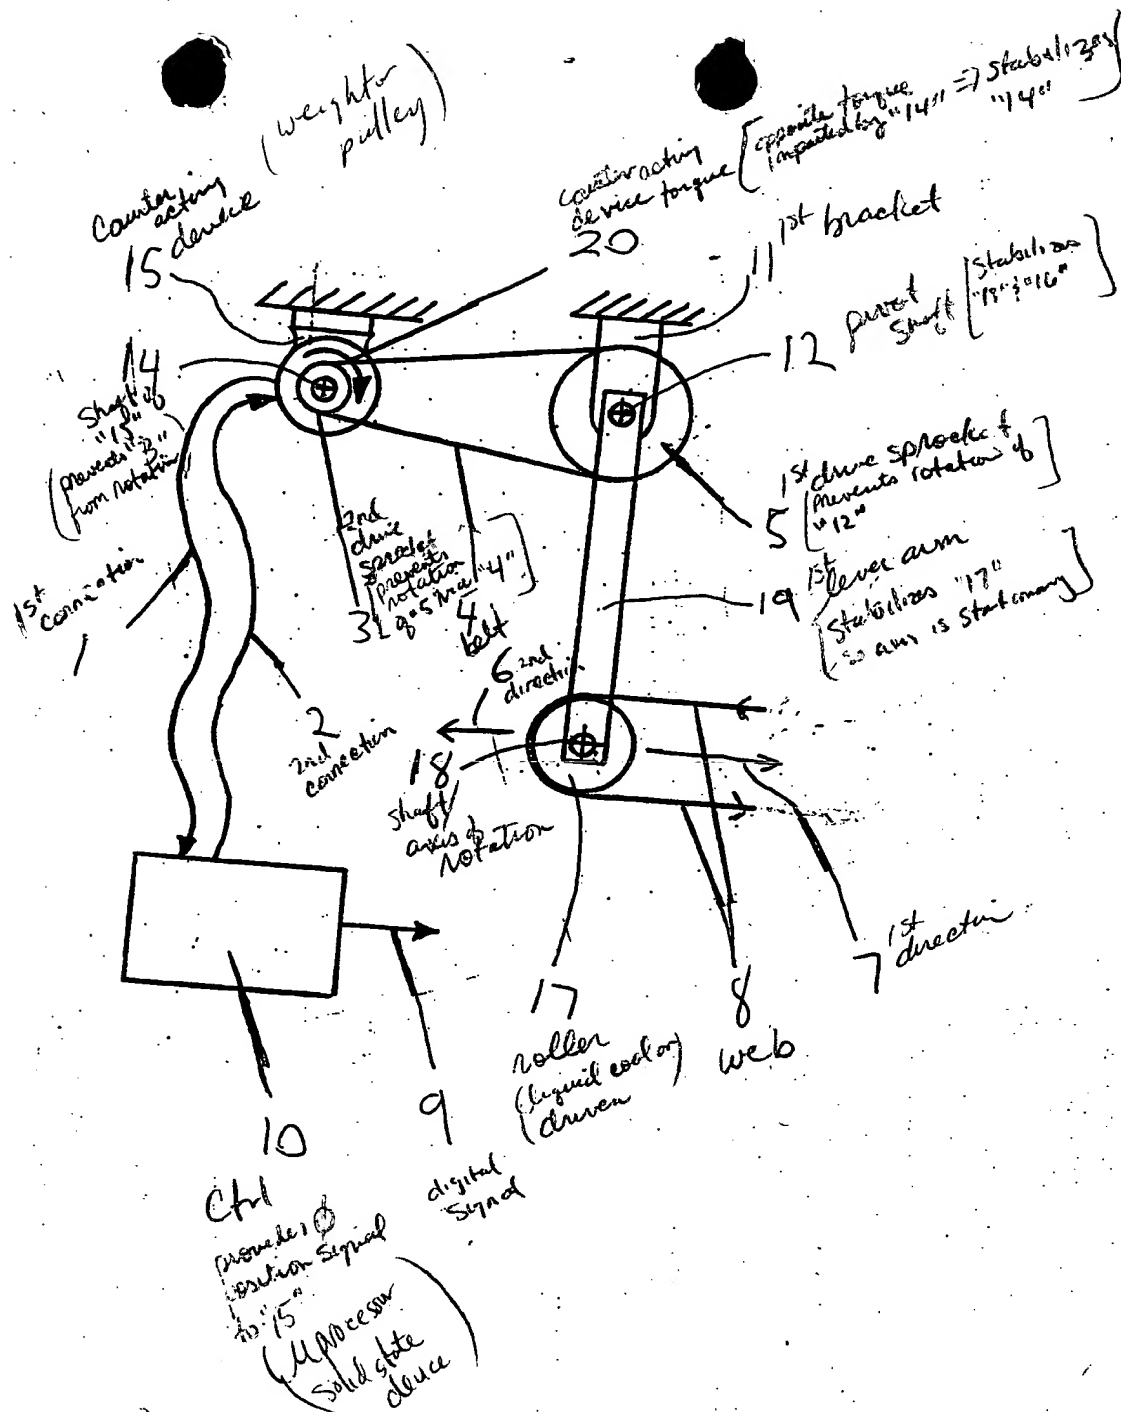 (weight or
pulley)
Counter
acting
device
15
counteracting
device torque
20
[opposite torque
imparted by "14" => stabilizes
"14"]
11 1st bracket
12 pivot
shaft
[stabilizes
14
shaft of
"15"
(prevents "3"
from rotation)
1st drive sprocket
[prevents rotation of
"12"]
5
2nd
drive
sprocket
[prevents
rotation
of "5" via "4"]
3
4
belt
19 1st
lever arm
[stabilizes "17"
so arm is stationary]
1st
connection
1
2
2nd
connection
6 2nd
direction
18
shaft/
axis of
rotation
7 1st
direction
17
roller
(liquid cool or
driven)
8
web
9
digital
signal
10
Ctrl
provides
position signal
to "15"
(µprocessor
solid state
device)